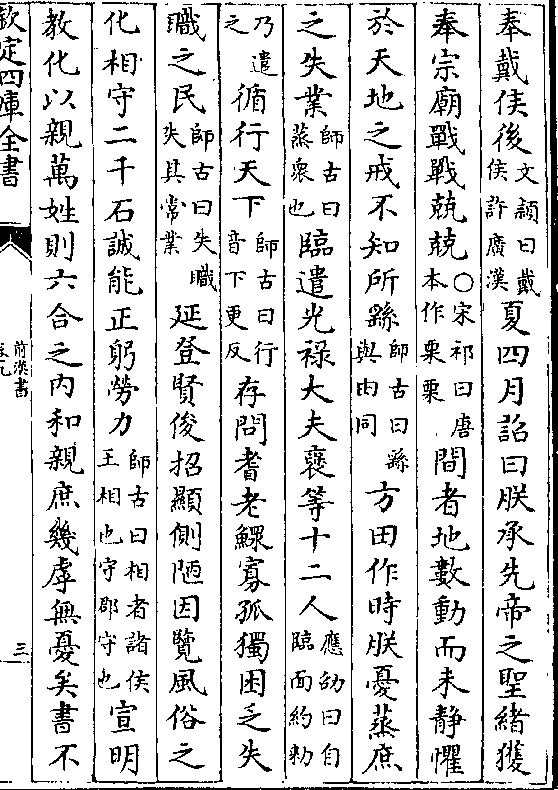 奉戴侯後文穎曰戴侯許廣漢夏四月詔曰朕承先帝之聖緒獲
奉宗廟戰戰兢兢○宋祁曰唐本作栗栗間者地數動而未静懼
於天地之戒不知所繇師古曰繇與由同方田作時朕憂蒸庶
之失業師古曰蒸衆也臨遣光禄大夫襃等十二人應劭曰自臨面約勑
乃遣之循行天下師古曰行音下更反存問耆老鰥寡孤獨困乏失
職之民師古曰失職失其常業延登賢俊招顯側陋因覽風俗之
化相守二千石誠能正躬勞力師古曰相者諸侯王相也守郡守也宣明
教化以親萬姓則六合之内和親庶幾虖無憂矣書不
欽定四庫全書
前漢書
卷九
三